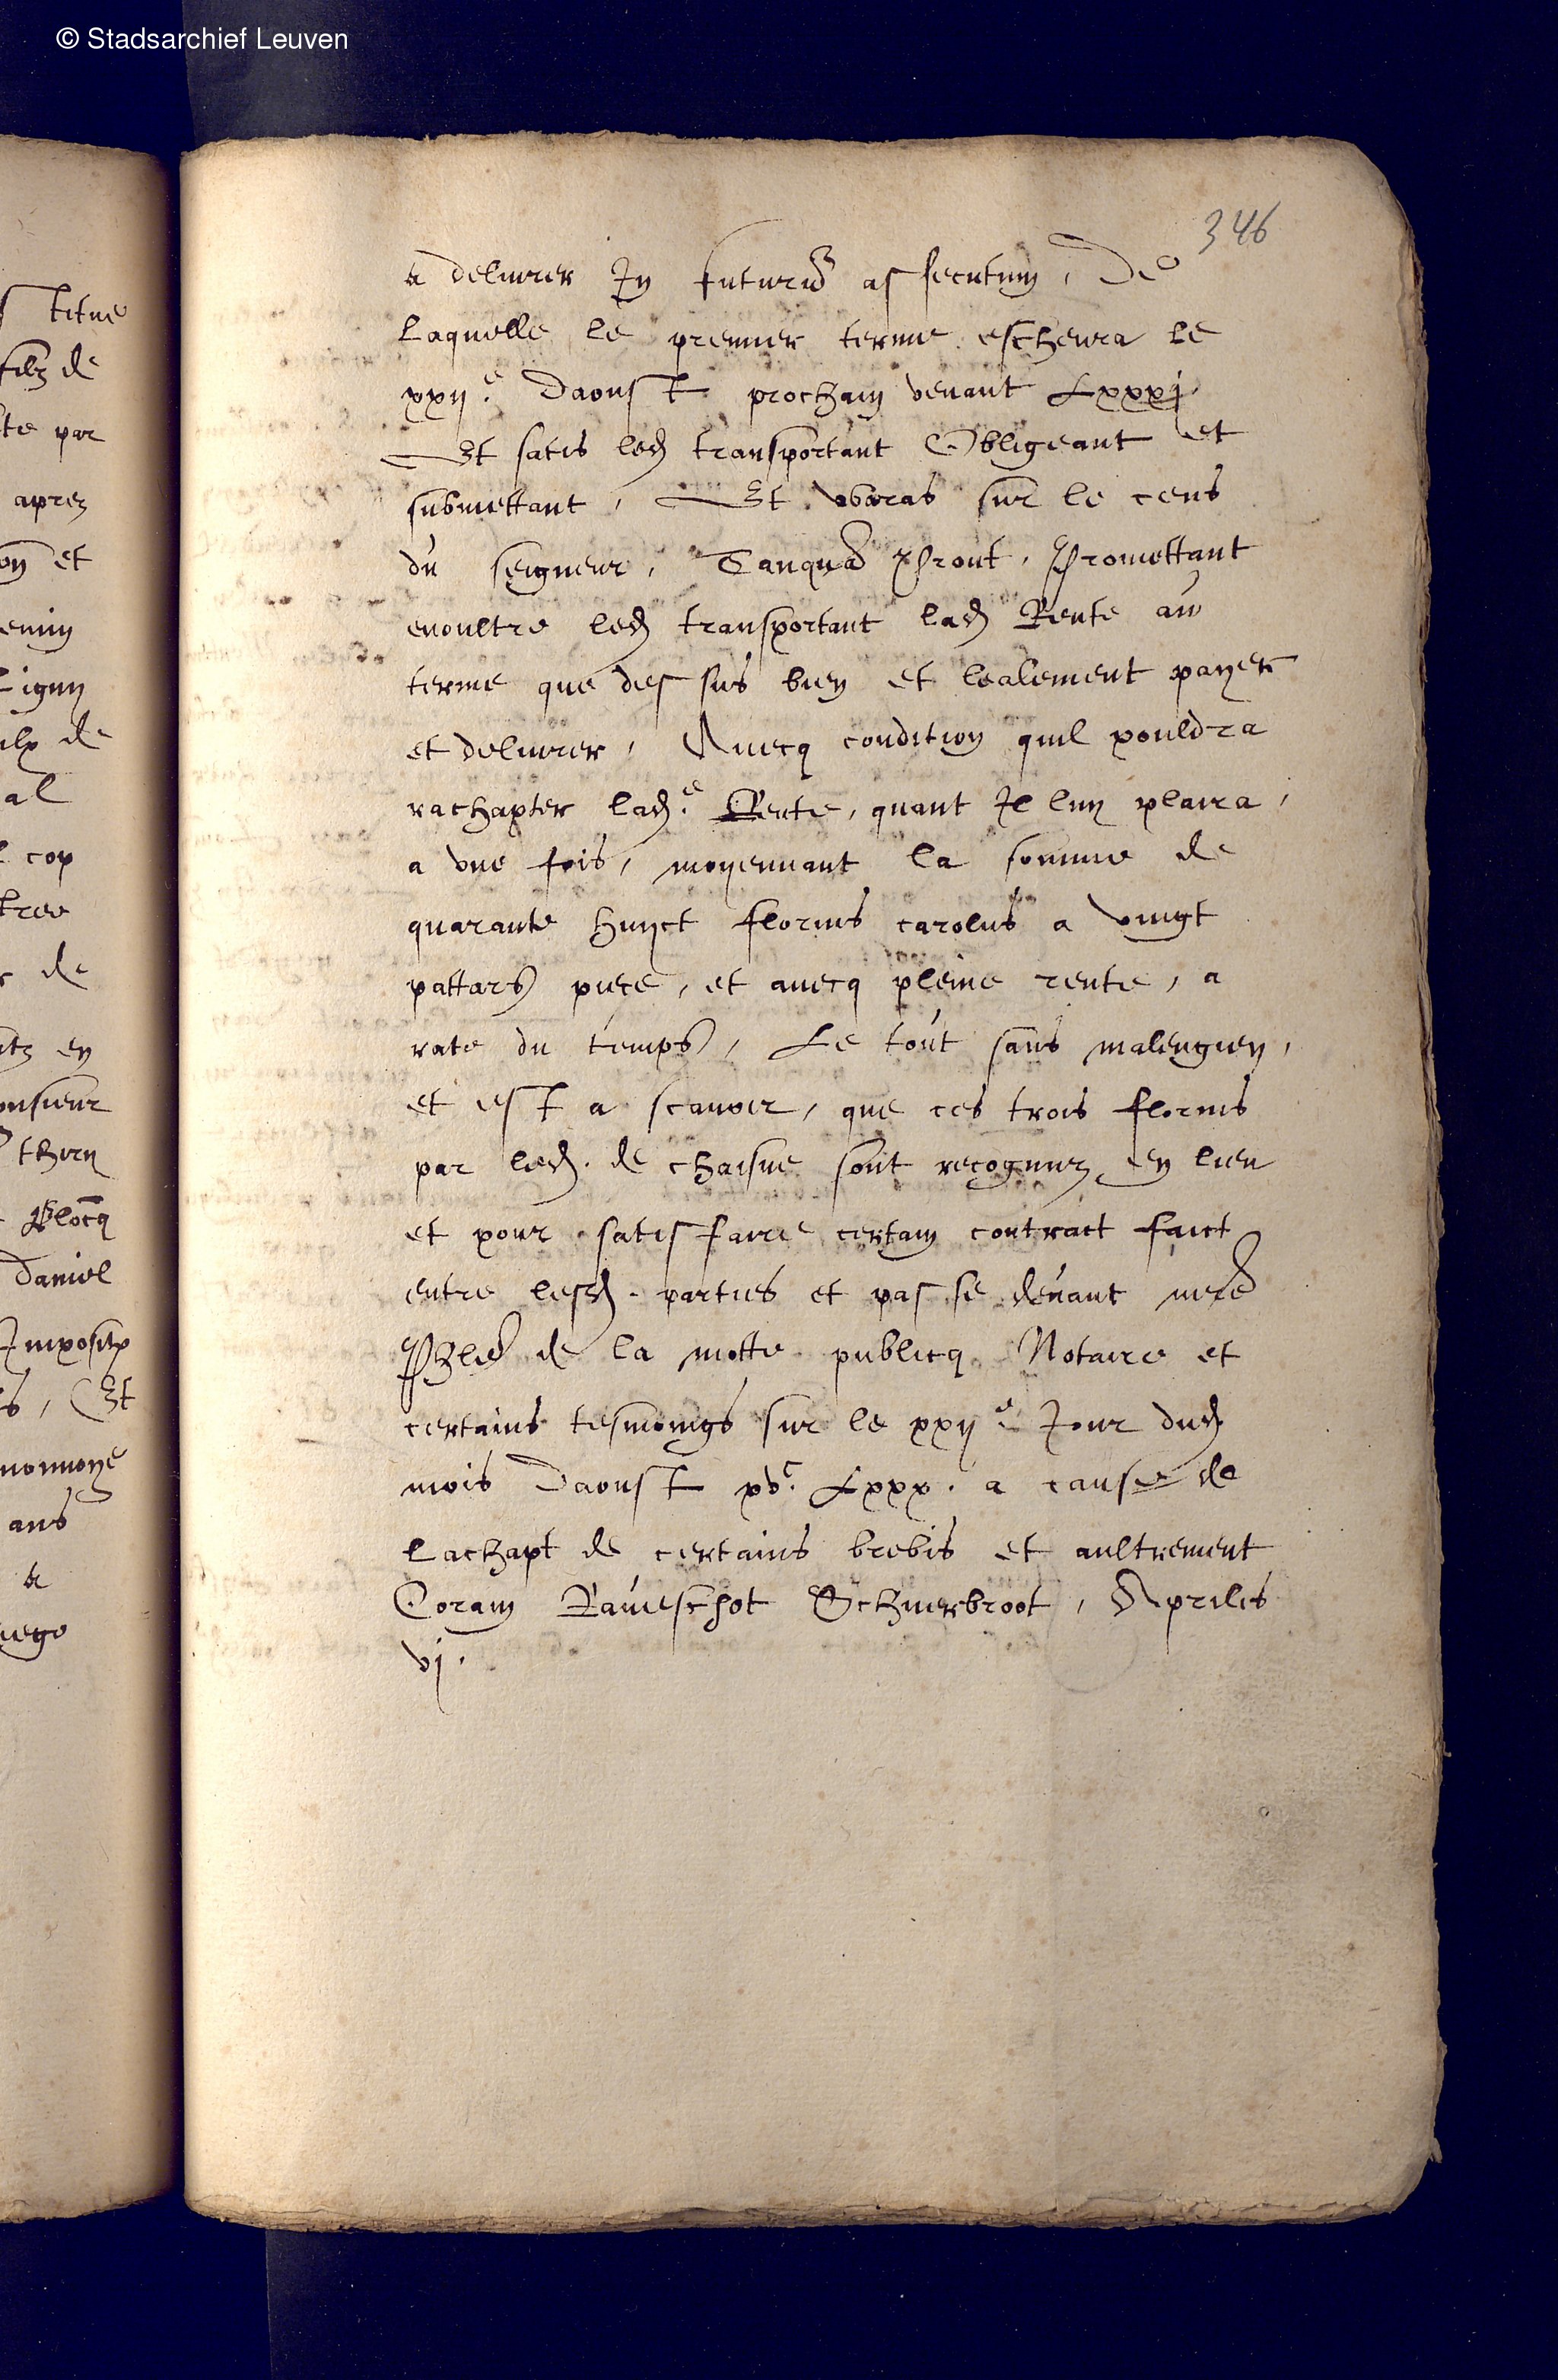 © Stadsarchief Leuven
346
a delivrer In futur[um] assecutum, De
laquelle le premier terme eschevra le
xxije Daoust prochain venant Lxxxj
Et satis led transportant Obligeant et
submettant, Et waras sur le cens
du seigneur, Tanqua[m] Prout, Promettant
enoultre led transportant lad Rente au
terme que dessus bien et lealement payer
et delivrer, Avecq condition quil pouldra
rachapter lade Rente, quant Il luy plaira,
a une fois, moyennant la somme de
quarante huyct florins carolus a vingt
pattars piece, et avecq pleine rente, a
rate du temps, Le tout sans malengien,
et est a scavoir, que ces trois florins
par led. de chaisne sont recognuz en lieu
et pour satisfaire certain contract faict
entre lesd. parties et passe devant
de la motte publicq Notaire et
certains tesmoings sur le xxije Jour dud
mois Daoust xvc Lxxx. a cause de
lachapt de certains brebis et aultrement
Coram Raveschot Schuerbroot, Aprilis
vj.
titue
filz de
te par
apres
on et
emin
ligny
de
al
cop
tree
de
en
onsieur
thiry
Blocq
Daniel
Imposit
s, Et
monnoye
ans
a